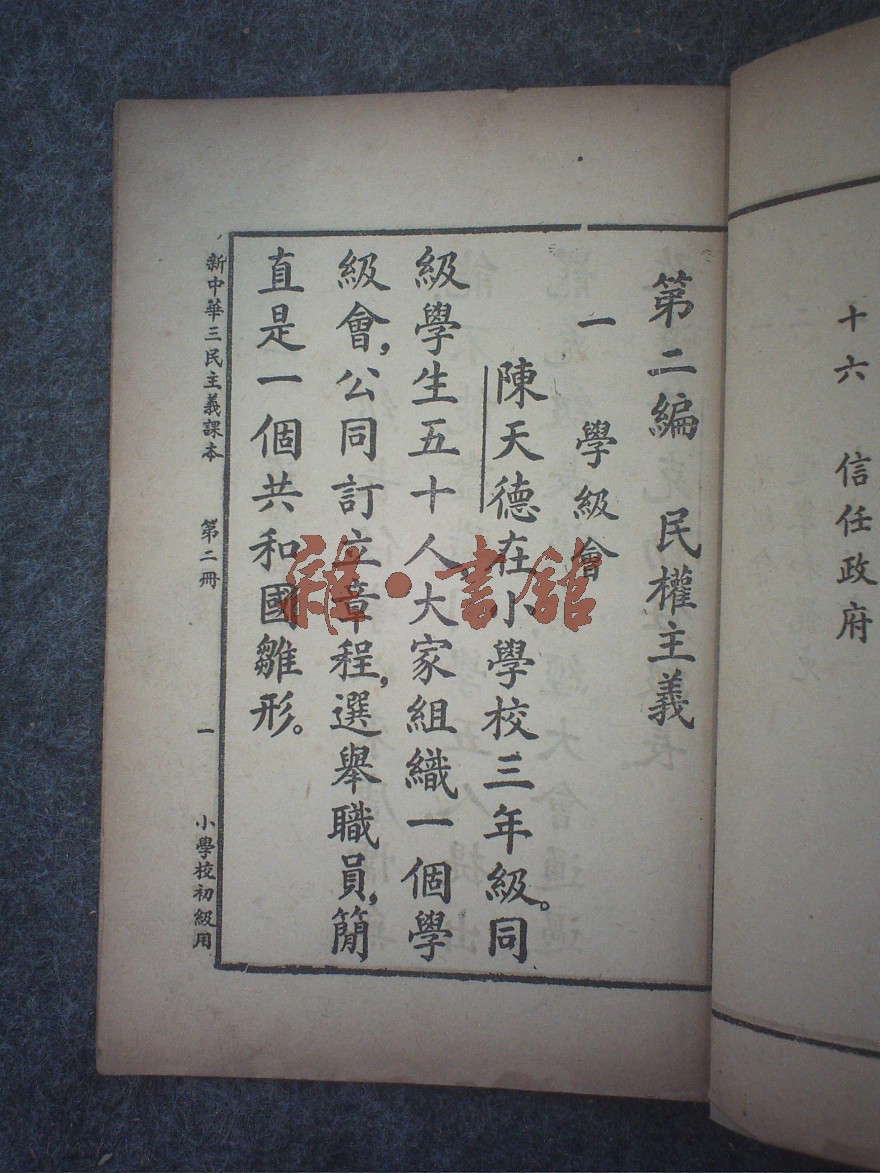 十六　信任政府
第二編　民權主義
一　學級會
陳天德在小學校三年級。同
級學生五十人大家組織一個學
級會，公同訂立章程，選舉職員，簡
直是一個共和國雛形。
新中華三民主義課本　第二冊　一　小學校初級用
雜·書館